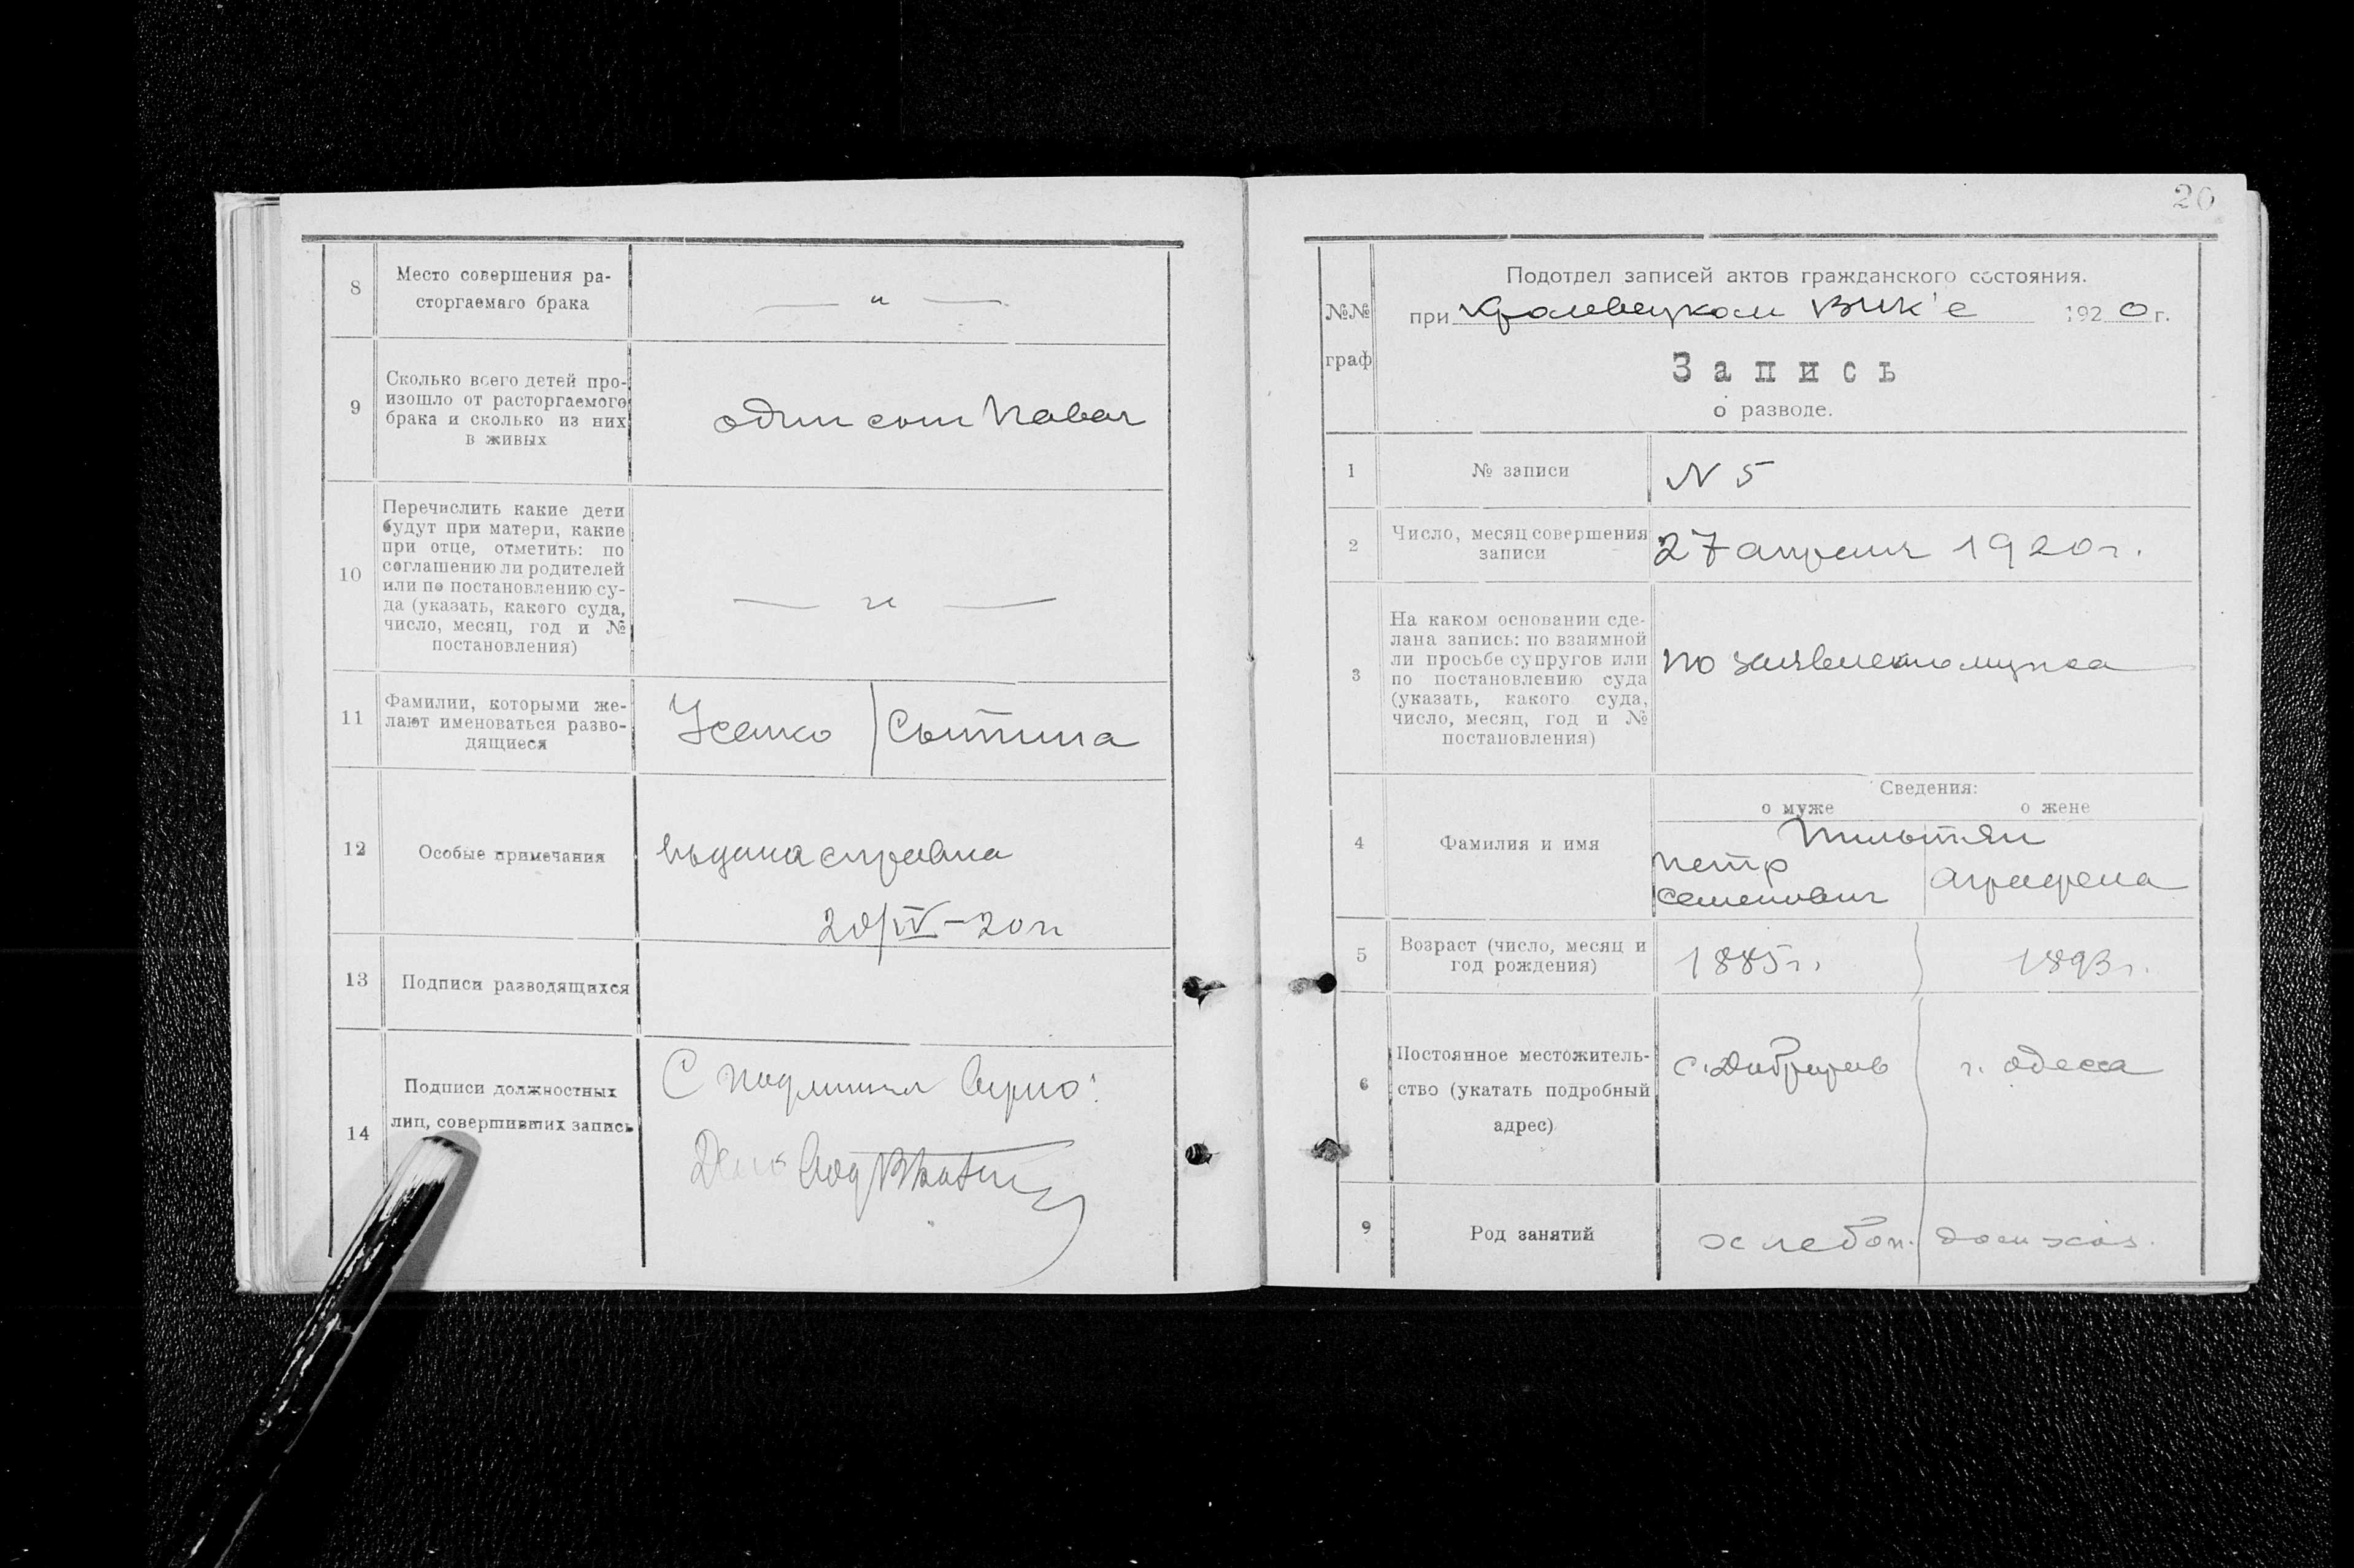 8
Место совершения ра-
сторгаемаго брака
— „ —
9
Сколько всего детей про-
изошло от расторгаемого
брака и сколько из них
в живых
один сын Павел
10
Перечислить какие дети
будут при матери, какие
при отце, отметить: по
соглашению ли родителей
или по постановлению су-
да (указать, какого суда,
число, месяц, год и №
постановления)
— „ —
11
Фамилии, которыми же-
лают именоваться разво-
дящиеся
Усенко Сытина
12
Особые примечания
выдана справка
20/IV–20 г
13
Подписи разводящихся
14
Подписи должностных
лиц, совершивших запись
С подлинным верно:
20
№№
граф
Подотдел записей актов гражданского состояния.
при Кролевецком ВИК'е 1920 г.
Запись
о разводе.
1
№ записи
N 5
2
Число, месяц совершения
записи
27 апреля 1920 г.
3
На каком основании сде-
лана запись: по взаимной
ли просьбе супругов или
по постановлению суда
(указать, какого суда,
число, месяц, год и №
постановления)
по заявлению мужа
Сведения:
о муже о жене
4
Фамилия и имя
Петр
Семенович
Аграфена
5
Возраст (число, месяц и
год рождения)
1885 г. 1893 г.
6
Постоянное местожитель-
ство (укатать подробный
адрес)
г. Одесса
9
Род занятий
хлебоп. дом. хоз.